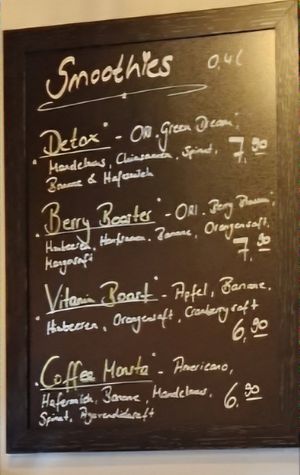 Smoothies 0,4l
"Detox" - ORI "Green Dream",
Mandelmus, Chiasamen, Spinat, 7,90
Banane & Hafermilch
"Berry Booster" - ORI "Berry Blossom",
Himbeeren, Hanfsamen, Banane, Orangensaft,
7,90
"Vitamin Boost" - Apfel, Banane,
Himbeeren, Orangensaft, Cranberrysaft
6,90
"Coffee Monsta" - Americano,
Hafermilch, Banane, Mandelmus, 6,90
Spinat, Agavendicksaft